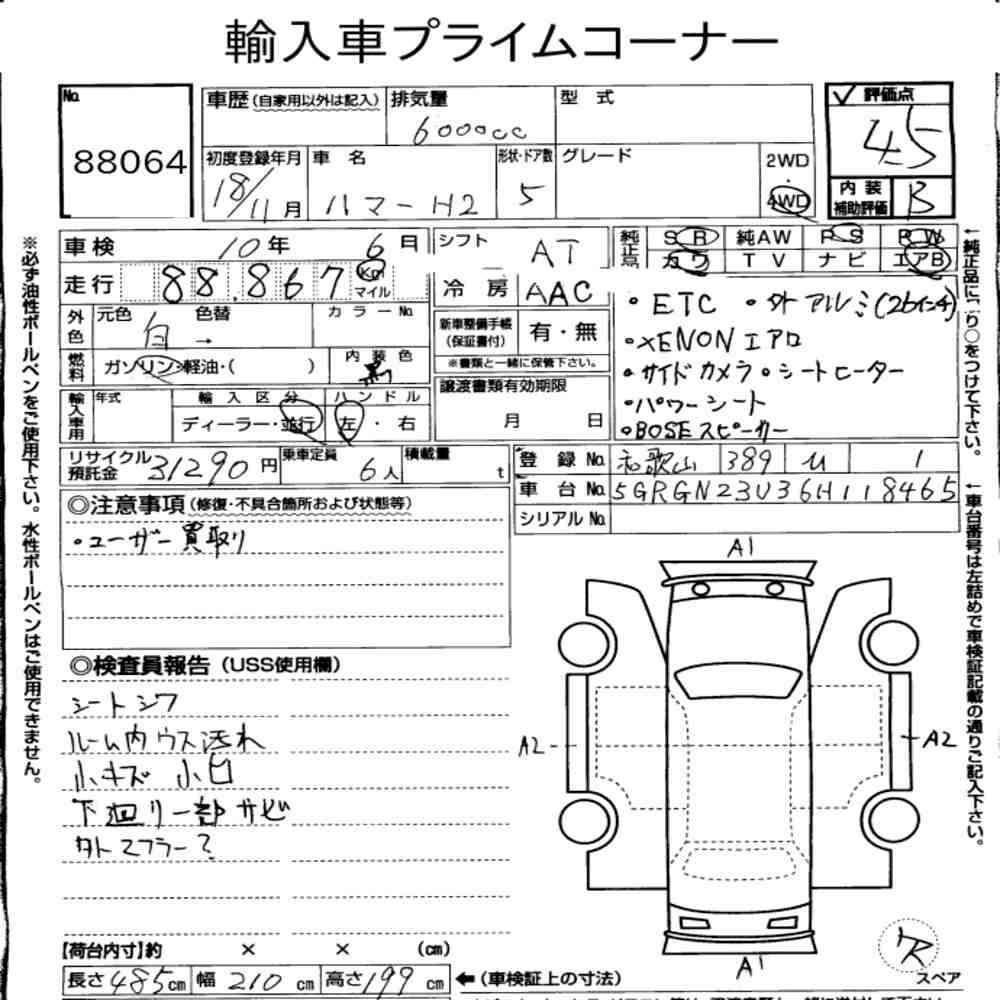 輸入車プライムコーナー
No. 88064
車歴(自家用以外は記入) 排気量 6000cc 型 式
✓ 評価点 4.5
初度登録年月 18/11月 車 名 ハマーH2 形状・ドア数 5 グレード 2WD ・ 4WD
内装補助評価 B
車検 10年 6月 シフト AT 純正品 SR 純AW PS PW
走行 88,867 Km マイル 冷房 AAC カワ TV ナビ エアB
外色 元色 白 色替 → カラーNo.
新車整備手帳(保証書付) 有・無
※書類と一緒に保管下さい。
燃料 ガソリン・軽油・( ) 内装色 黒
譲渡書類有効期限 月 日
輸入車用 年式 輸入区分 ハンドル
ディーラー・並行 左・右
・ETC ・外アルミ(26インチ)
・XENON エアロ
・サイドカメラ ・シートヒーター
・パワーシート
・BOSEスピーカー
リサイクル預託金 31290円 乗車定員 6人 積載量 t
登録No. 和歌山 389 1
車台No. 5GRGN23U36H118465
シリアルNo.
◎注意事項(修復・不具合箇所および状態等)
・ユーザー買取り
◎検査員報告(USS使用欄)
シートシワ
ルーム内ウス汚れ
小キズ 小凹
下廻り一部サビ
外マフラー?
A1
A2
A2
A1
スペア
【荷台内寸】約 × × (cm)
長さ 485cm 幅 210cm 高さ 199cm ←(車検証上の寸法)
※必ず油性ボールペンをご使用下さい。水性ボールペンはご使用できません。
←車台番号は左詰めで車検証記載の通りご記入下さい。